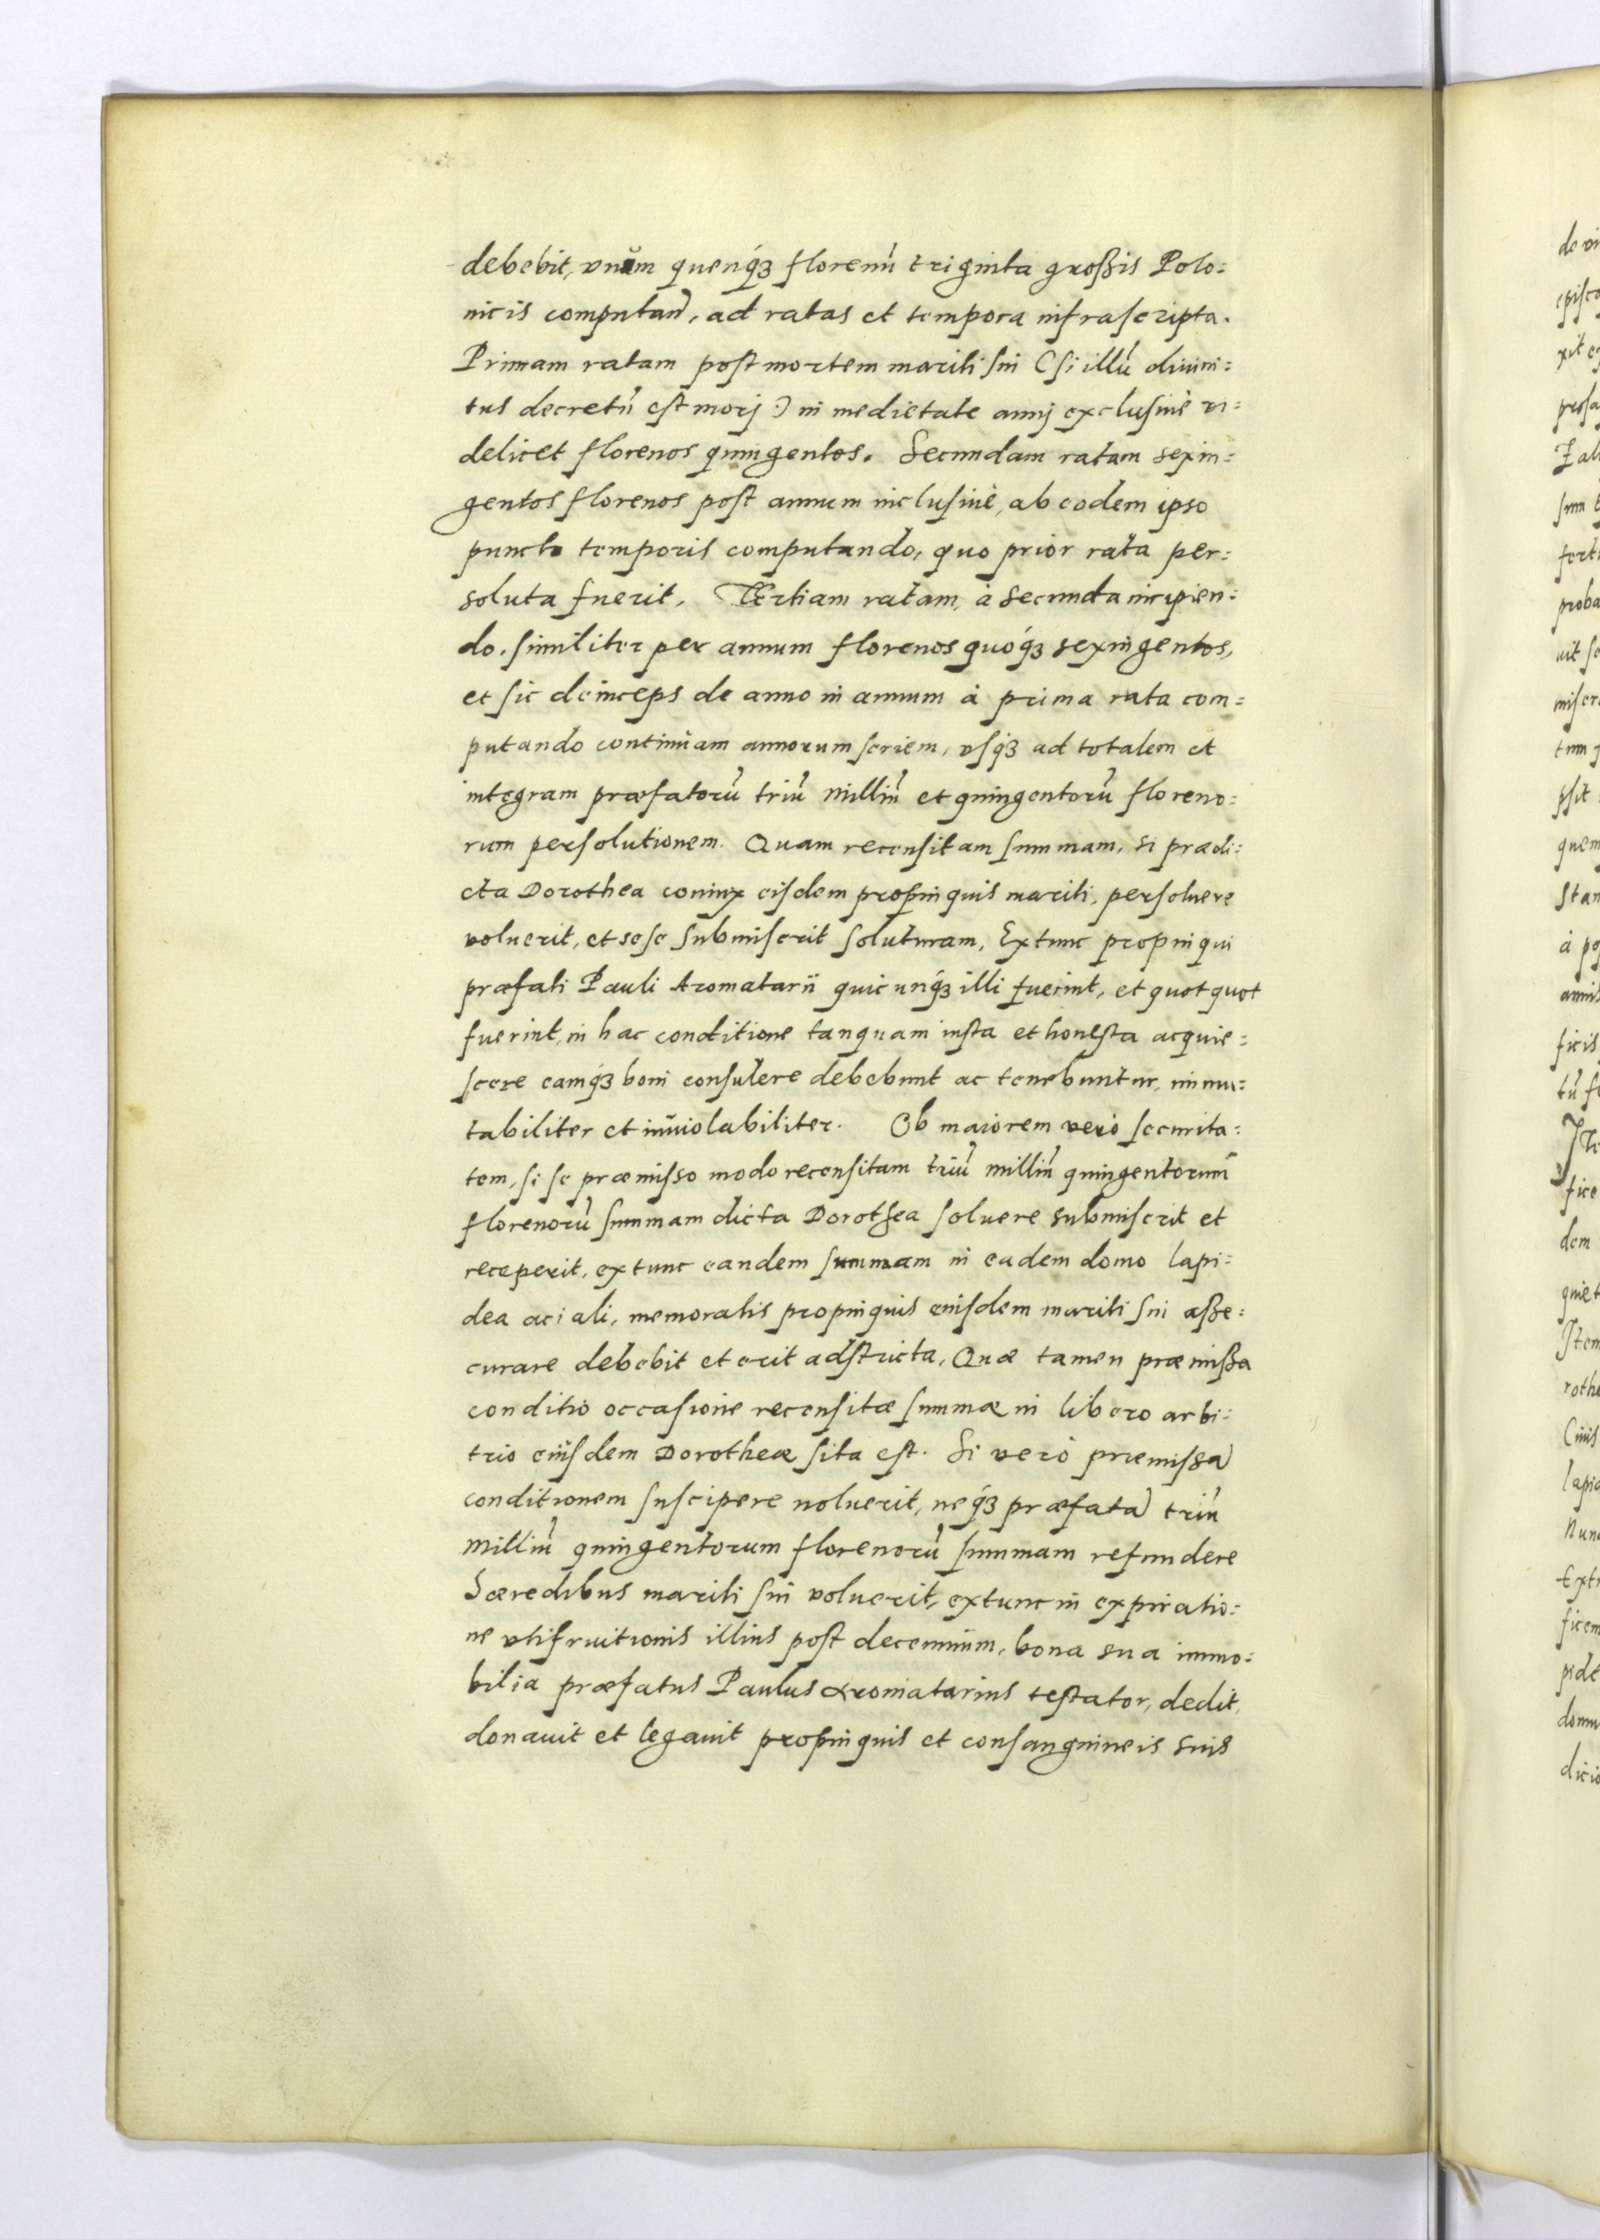 debebit, vnŭm quenq́ꝫ florenũ triginta großis Polo:
nicis computan̄, ad ratas et tempora infrascripta.
Primam ratam post mortem mariti sui (si illũ diuini:
tus decretũ est morj :) in medietate annj exclusiuè vi:
delicet florenos quingentos. Secundam ratam sexin:
gentos florenos post annum inclusiuè, ab eodem ipso
puncto temporis computando, quo prior rata per:
soluta fuerit. Tertiam ratam, à secunda incipien:
do. similiter per annum florenos quoq́ꝫ sexingentos,
et sic deinceps de anno in annum à prima rata com:
putando continuam annorum seriem, vsq́ꝫ ad totalem et
integram præfatorũ triũ milliũ et quingentorũ floreno:
rum persolutionem. Quam recensitam summam, si prædi:
cta Dorothea coniux eisdem propinquis mariti, persoluere
voluerit, et sese submiserit soluturam, Extunc propinqui
præfati Pauli Aromatarii quicunq́ꝫ illi fuerint, et quotquot
fuerint, in hac conditione tanquam iusta et honesta acquie:
scere eamq́ꝫ boni consulere debebunt ac tenebuntur, immu:
tabiliter et inuiolabiliter. Ob maiorem verò securita:
tem, si se præmisso modo recensitam triũ milliũ quingentorum
florenorũ summam dicta Dorothea soluere submiserit et
receperit, extunc eandem summam in eadem domo lapi:
dea aciali, memoratis propinquis eiusdem mariti sui aße:
curare debebit et erit adstricta, Quæ tamen præmißa
conditio occasione recensitæ summæ in libero arbi:
trio eiusdem Dorotheæ sita est. Si verò præmissā
conditionem suscipere noluerit, neq́ꝫ præfatā triũ
milliũ quingentorum florenorũ summam refundere
Hæredibus mariti sui voluerit, extunc in expiratio:
ne vtifruitionis illius post decennium, bona sua immo:
bilia præfatus Paulus Aromatarius testator, dedit,
donauit et legauit propinquis et consanguineis suis